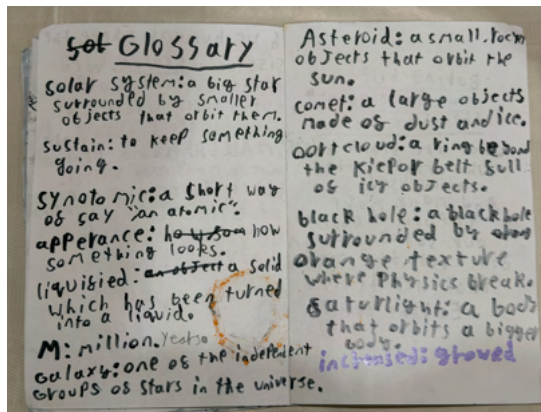 Glossary
solar system: a big star
surrounded by smaller
objects that orbit them.
sustain: to keep something
going.
synotomic: a short way
of say "an atomic".
apperance: how
something looks.
liquisied: a solid
which has been turned
into a liquid.
M: million. Years.
Galaxy: one of the indepenent
groups of stars in the universe.
Asteroid: a small. rocm
objects that orbit the
sun.
comet: a large objects
made of dust and ice.
oort cloud: a ring beyond
the Kieper belt full
of icy objects.
black hole: a black hole
surrounded by
orange texture
where Physics break.
saturlight: a body
that orbits a bigger
body.
increased: growed